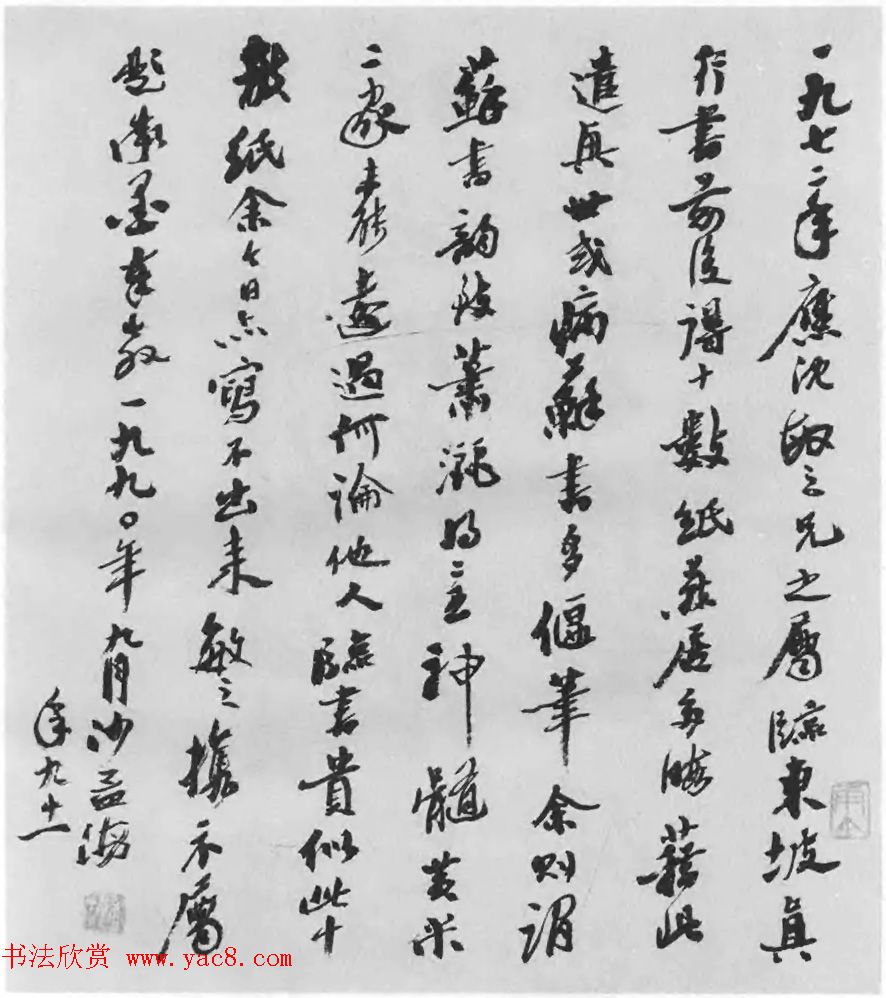 一九七二年應沈敏之兄之屬臨東坡真
行書前後得十數紙蕭居多暇藉此
遣興世或病蘇書多偃筆余則謂
蘇書韻致蕭灑得王神髓黃米
二家未能遠過何論他人臨書貴似此十
數紙余今日亦寫不出来敏之携示屬
題漱墨奉教一九九〇年九月沙孟海
年九十一
书法欣赏 www.yac8.com